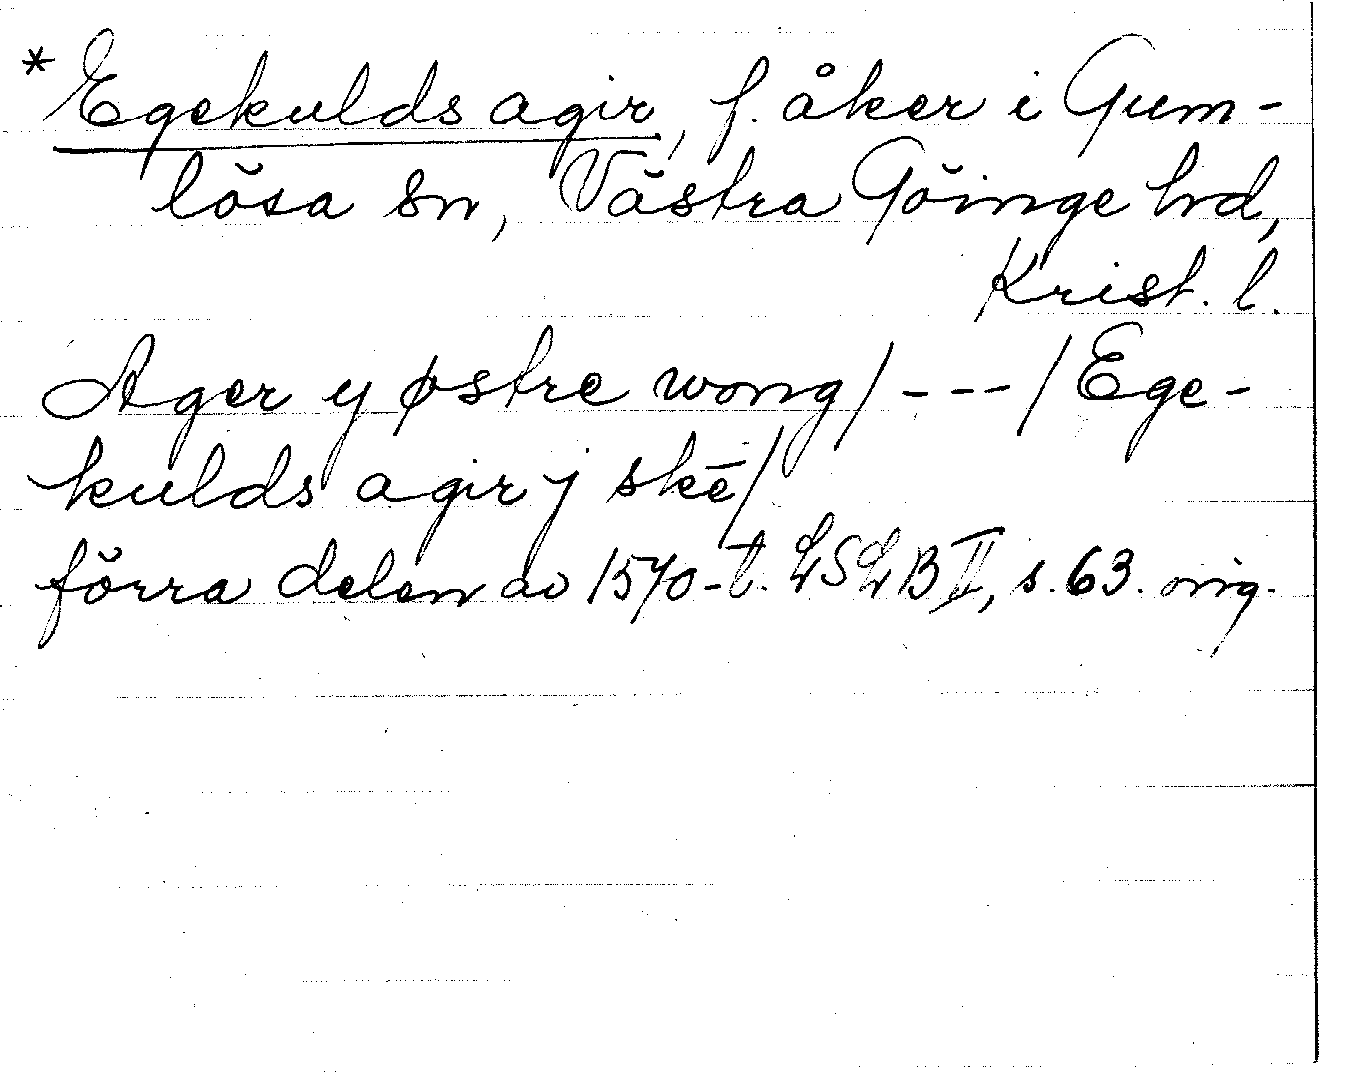 * Egekulds agir, f. åker i Gum-
lösa sn, Västra Göinge hd,
Krist. l.
Ager y østre wong/---/Ege-
kulds agir j skē/
förra delen av 1570-t. LSLB II, s. 63. orig.